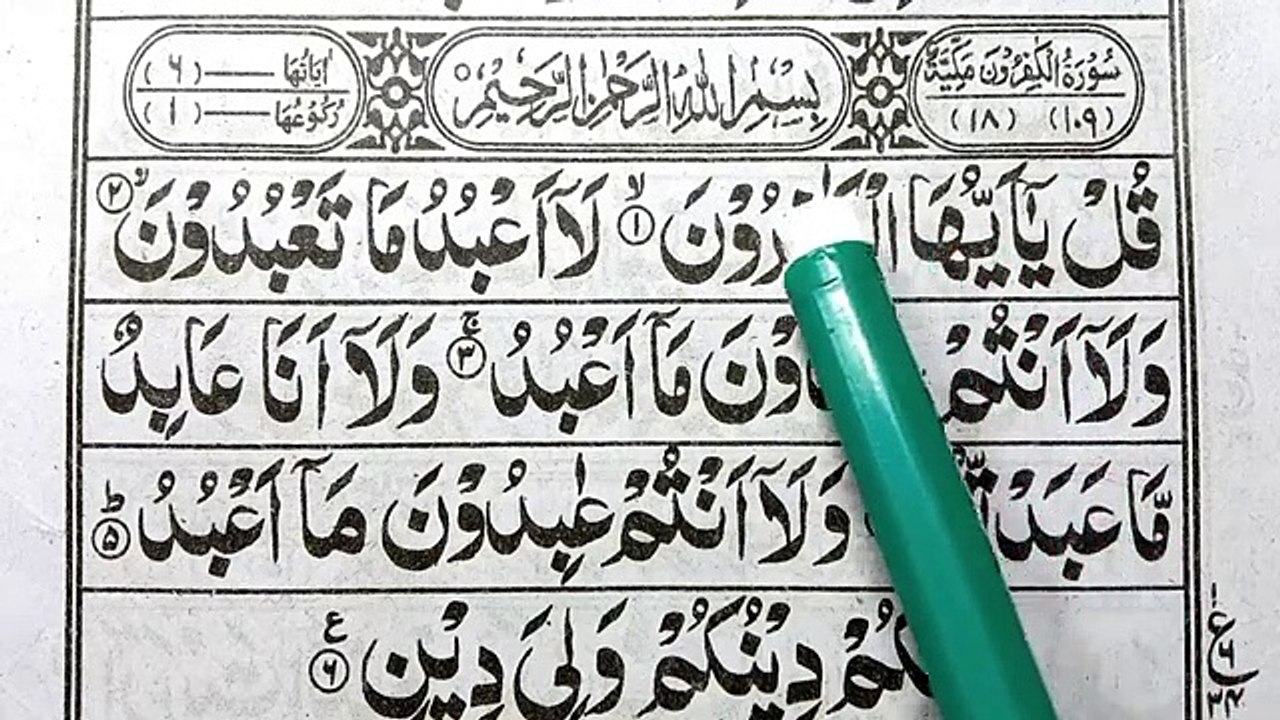 سُوْرَةُ الْكٰفِرُوْنَ مَكِّيَّةٌ
(١٠٩) (١٨)
بِسْمِ اللّٰهِ الرَّحْمٰنِ الرَّحِيْمِ
اٰيَاتُهَا (٦)
رُكُوْعُهَا (١)
قُلْ يٰۤاَيُّهَا ۙ﴿١﴾ لَاۤ اَعْبُدُ مَا تَعْبُدُوْنَ ۙ﴿٢﴾
وَلَاۤ اَنْتُمْ مَاۤ اَعْبُدُ ۚ﴿٣﴾ وَلَاۤ اَنَا عَابِدٌ
مَّا عَبَدْتُّمْ وَلَاۤ اَنْتُمْ عٰبِدُوْنَ مَاۤ اَعْبُدُ ؕ﴿٥﴾
دِيْنُكُمْ وَلِيَ دِيْنِ ﴿٦﴾ ع